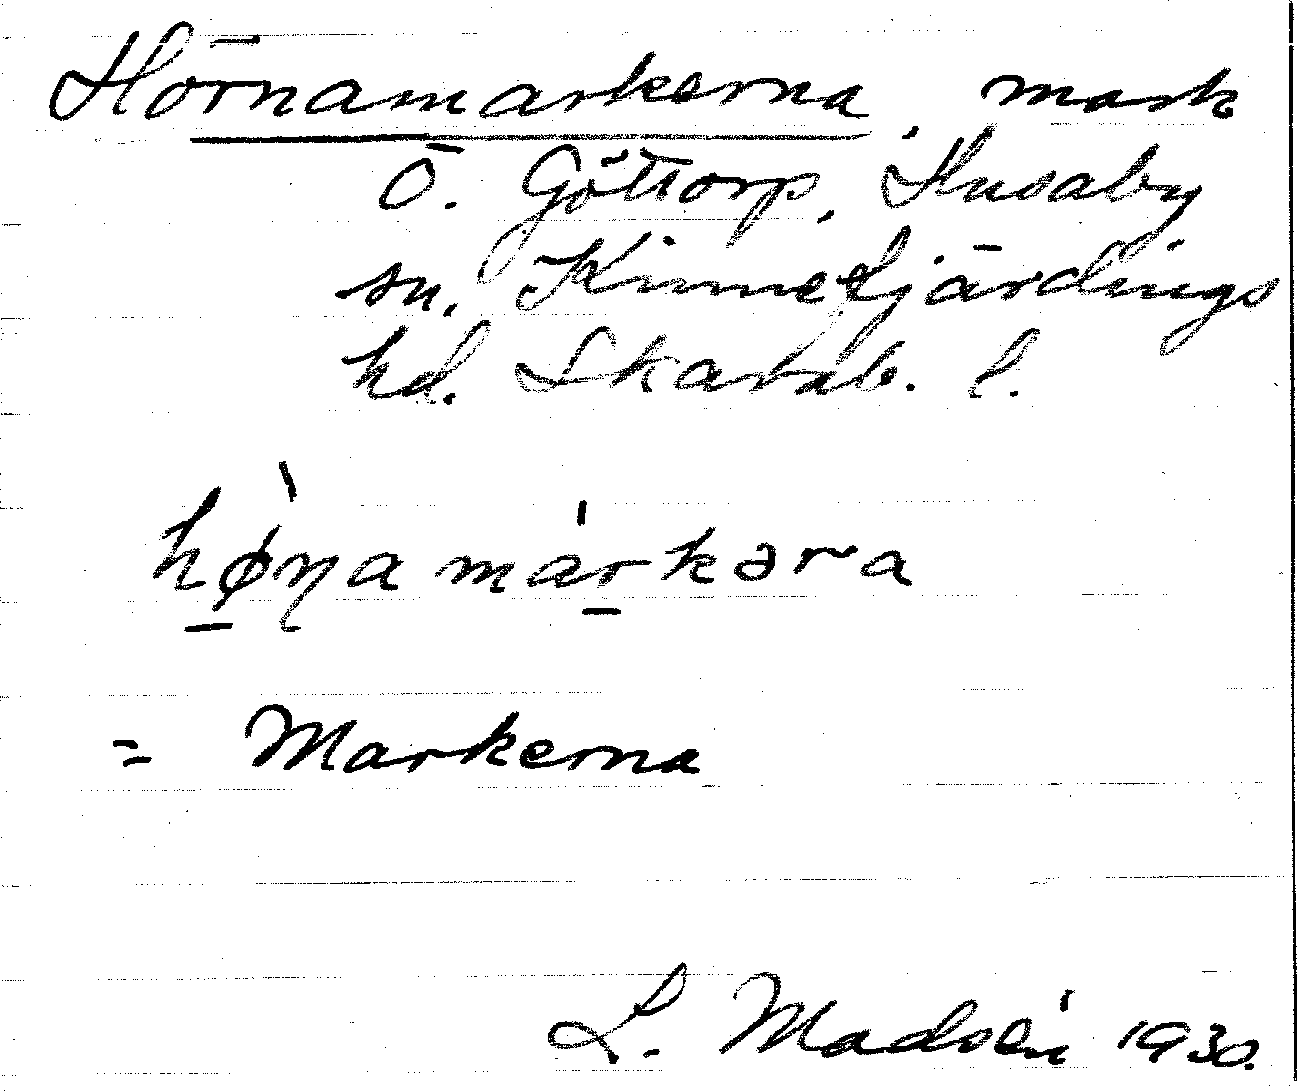 Hörnamarkerna, mark
Ö. Göttorp, Husaby
sn, Kinnefjärdings
hd. Skarab. l.
hø̀ɳamárkəra
= Markerna
L. Madsén 1930.